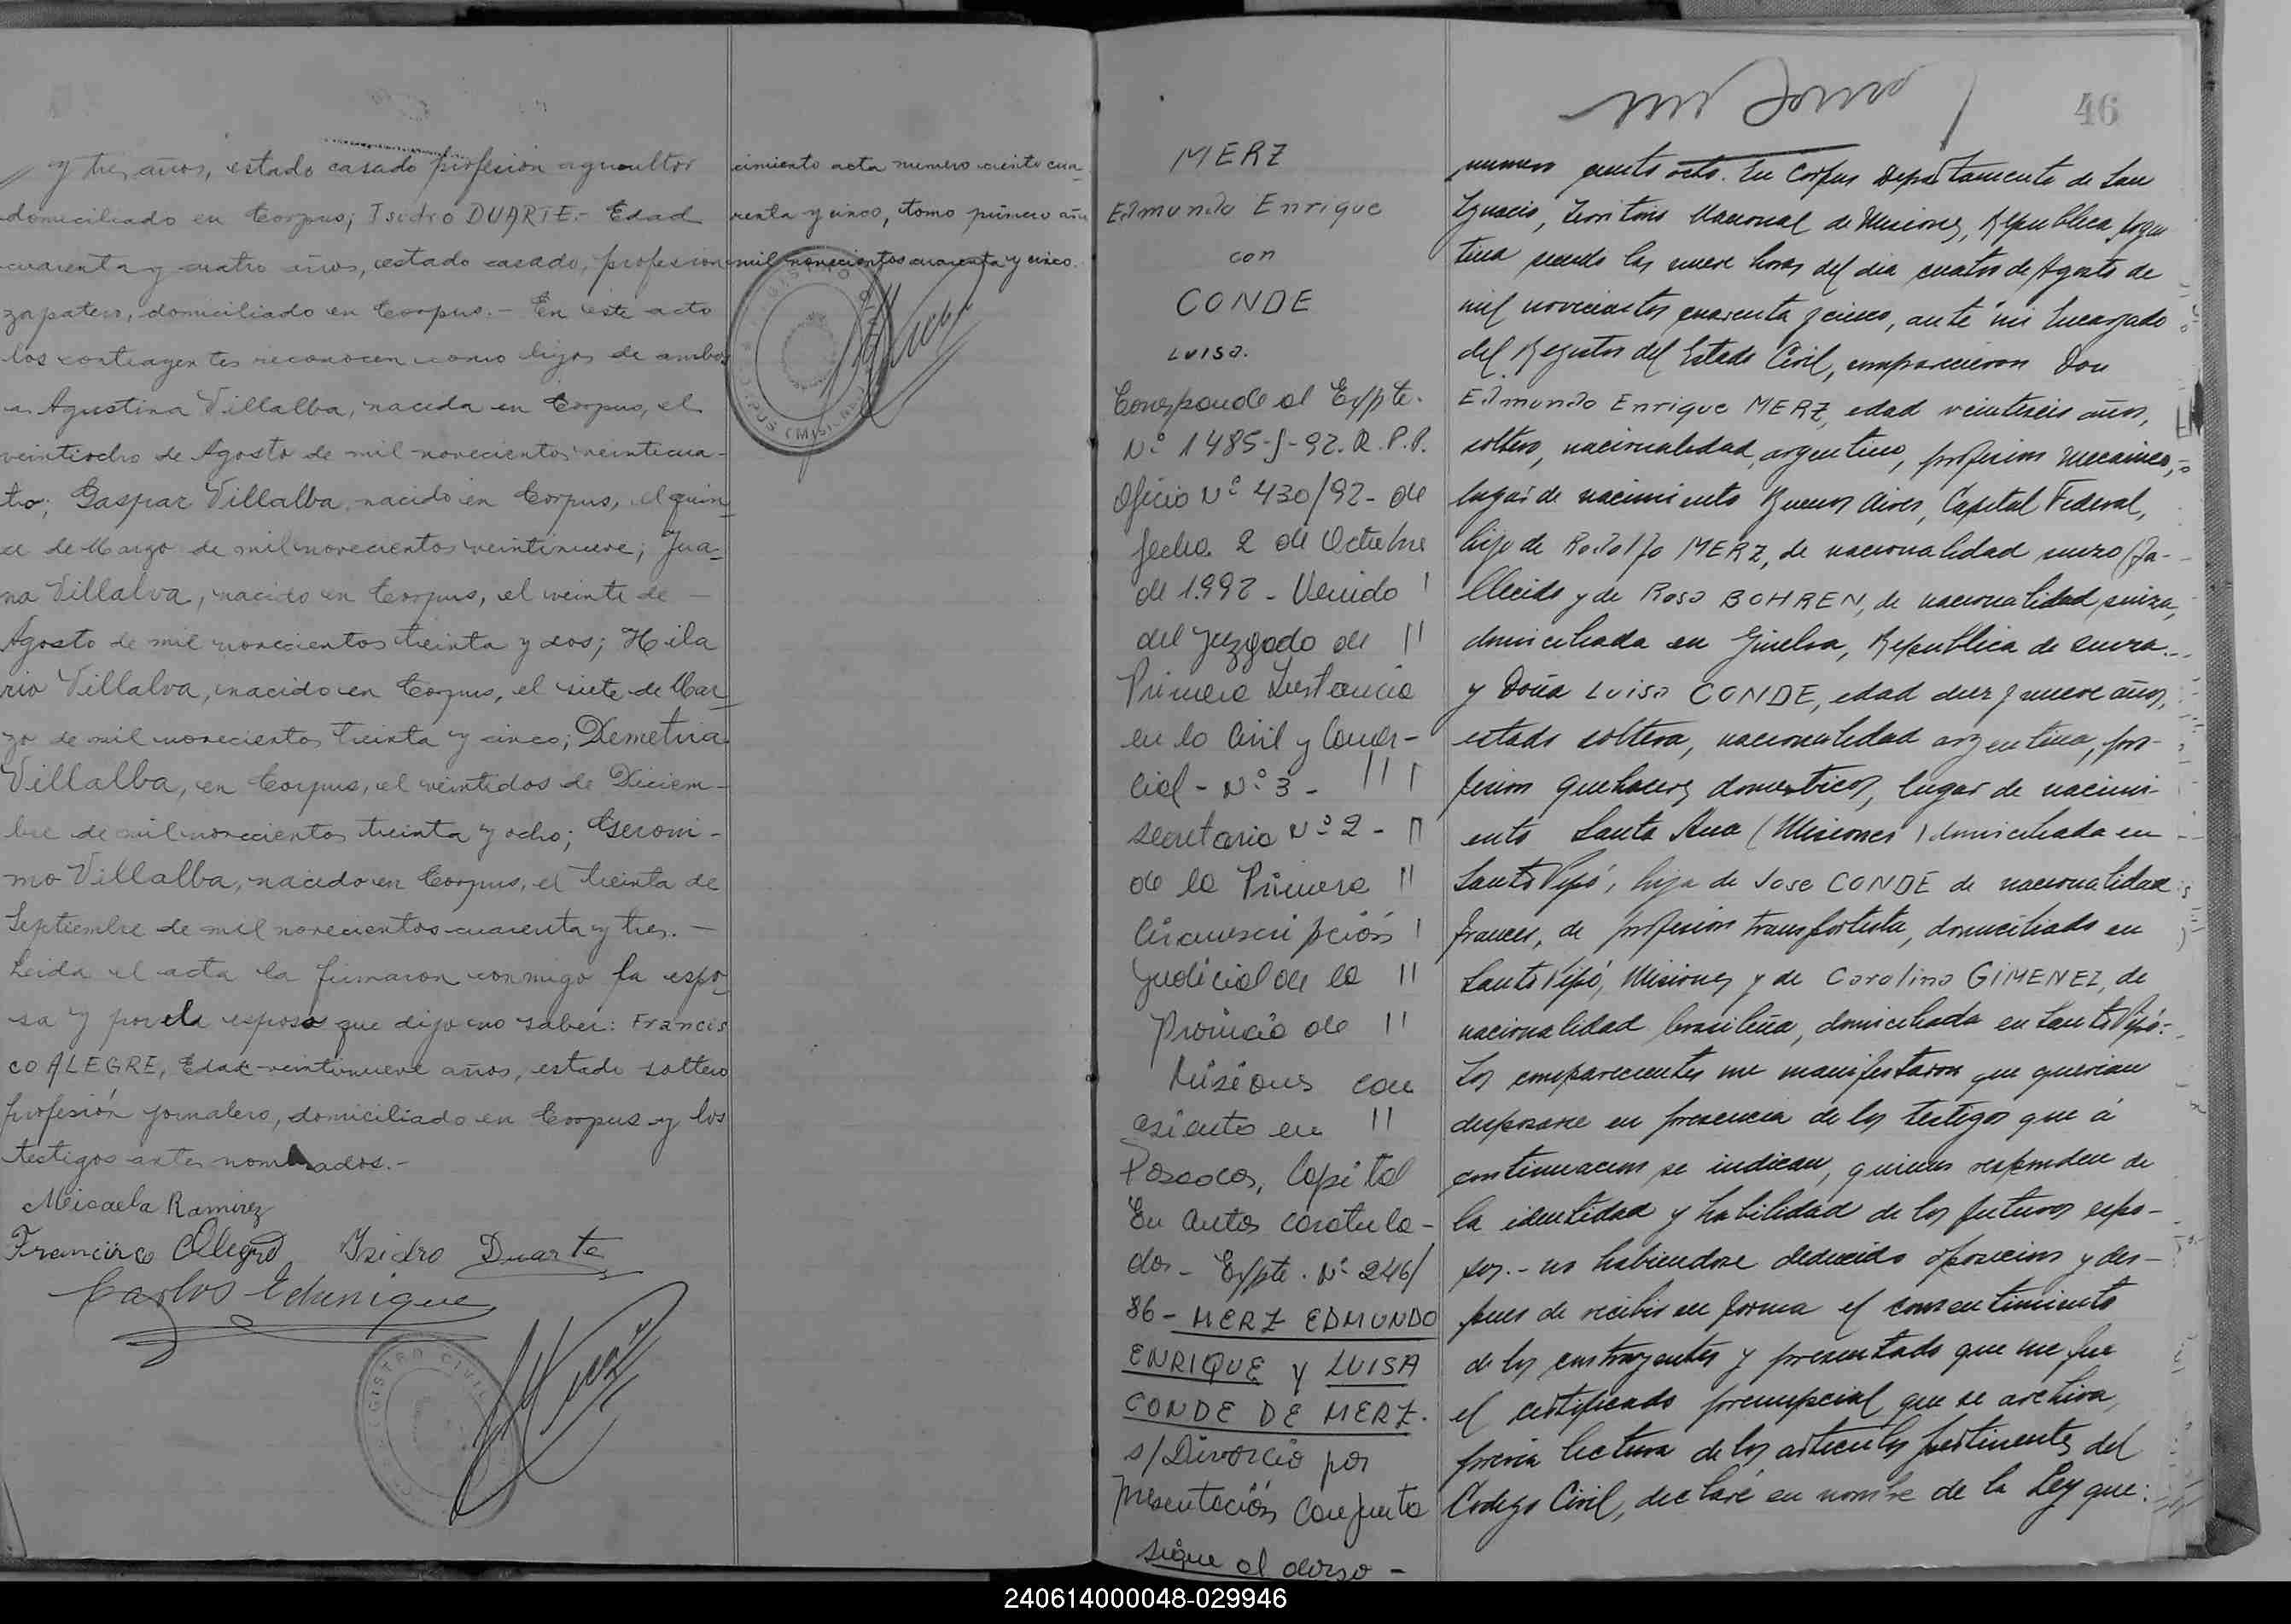 y tres años, estado casado profesión agricultor
domiciliado en Corpus; Isidro DUARTE.- Edad
cuarenta y cuatro años, estado casado, profesion
zapatero, domiciliado en Corpus.- En este acto
los contrayentes reconocen como hijos de ambos
a Agustina Villalba, nacida en Corpus, el
veintiocho de Agosto de mil novecientos veinticua-
tro; Gaspar Villalba, nacido en Corpus, el quin-
ce de Marzo de mil novecientos veintinueve; Jua-
na Villalva, nacido en Corpus, el veinte de —
Agosto de mil novecientos treinta y dos; Hila
rio Villalva, nacido en Corpus, el siete de Mar
zo de mil novecientos treinta y cinco; Demetria
Villalba, en Corpus, el veintidos de Diciem-
bre de mil novecientos treinta y ocho; Geroni-
mo Villalba, nacido en Corpus, el treinta de
Septiembre de mil novecientos cuarenta y tres.—
Leida el acta la firmaron conmigo la espo-
sa y por el esposo que dijo no saber: Francis
co ALEGRE, Edad veintinueve años, estado soltero
profesión jornalero, domiciliado en Corpus y los
testigos antes nombrados.-
Micaela Ramirez
Francisco Alegre Isidro Duarte
Carlos Echenique
REGISTRO CIVIL
cimiento acta numero ciento cua-
renta y cinco, tomo primero año
mil novecientos cuarenta y cinco.
CORPUS (MISIONES)
46
MERZ
Edmundo Enrique
con
CONDE
Luisa.
Corresponde al Expte.
Nº 1485-J-92.R.P.P.
Oficio Nº 430/92- de
fecha 2 de Octubre
de 1.992 - Venido
del Juzgado de
Primera Instancia
en lo Civil y Comer-
cial - Nº 3 -
secretaria Nº 2 -
de la Primera
Circunscripción
Judicial de la
Provincia de
Misiones con
asiento en
Posadas, Capital
En autos caratula-
dos - Expte. Nº 246/
86 - MERZ EDMUNDO
ENRIQUE y LUISA
CONDE DE MERZ.
s/Divorcio por
presentación Conjunta
sigue al dorso -
numero ciento ocho. En Corpus Departamento de San
Ignacio, Territorio Nacional de Misiones, Republica Argen
tina siendo las nueve horas del dia cuatro de Agosto de
mil novecientos cuarenta y cinco, ante mi Encargado
del Registro del Estado Civil, comparecieron Don
Edmundo Enrique MERZ, edad veintiseis años,
soltero, nacionalidad argentino, profesion mecanico,
lugar de nacimiento Buenos Aires, Capital Federal,
hijo de Rodolfo MERZ, de nacionalidad suizo (fa-
llecido y de Rosa BOHREN, de nacionalidad suiza,
domiciliada en Ginebra, Republica de Suiza.-
y Doña Luisa CONDE, edad diez y nueve años,
estado soltera, nacionalidad argentina, pro-
fesion quehaceres domesticos, lugar de nacimi-
ento Santa Ana (Misiones) domiciliada en
Santo Pipó, hija de Jose CONDE de nacionalidad
frances, de profesion transportista, domiciliado en
Santo Pipó, Misiones y de Carolina GIMENEZ, de
nacionalidad brasileña, domiciliada en Santo Pipó.-
Los comparecientes me manifestaron que querian
desposarse en presencia de los testigos que á
continuacion se indican, quienes responden de
la identidad y habilidad de los futuros espo-
sos.- no habiendose deducido oposicion y des-
pues de recibir en forma el consentimiento
de los contrayentes y presentado que me fue
el certificado prenupcial que se archiva,
previa lectura de los articulos pertinentes del
Codigo Civil, declaré en nombre de la Ley que:
240614000048-029946